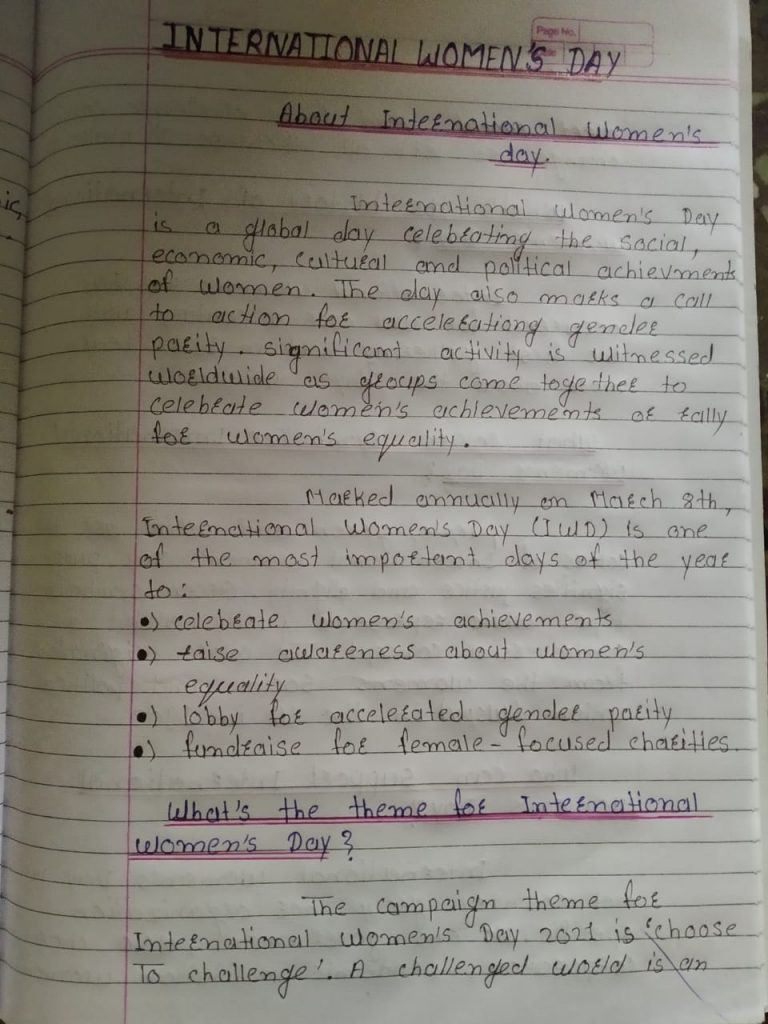 Page No.
INTERNATIONAL WOMEN'S DAY
About International Women's
day.
International Women's Day
is a global day celebrating the social,
economic, cultural and political achievments
of women. The day also marks a call
to action for accelerationg gender
parity. significant activity is witnessed
worldwide as groups come together to
celebrate women's achievements or rally
for women's equality.
Marked annually on March 8th,
International Women's Day (IWD) is one
of the most important days of the year
to:
•) celebrate women's achievements
•) raise awareness about women's
equality
•) lobby for accelerated gender parity
•) fundraise for female - focused charities.
What's the theme for International
Women's Day?
The campaign theme for
International Women's Day 2021 is 'choose
To challenge'. A challenged world is an